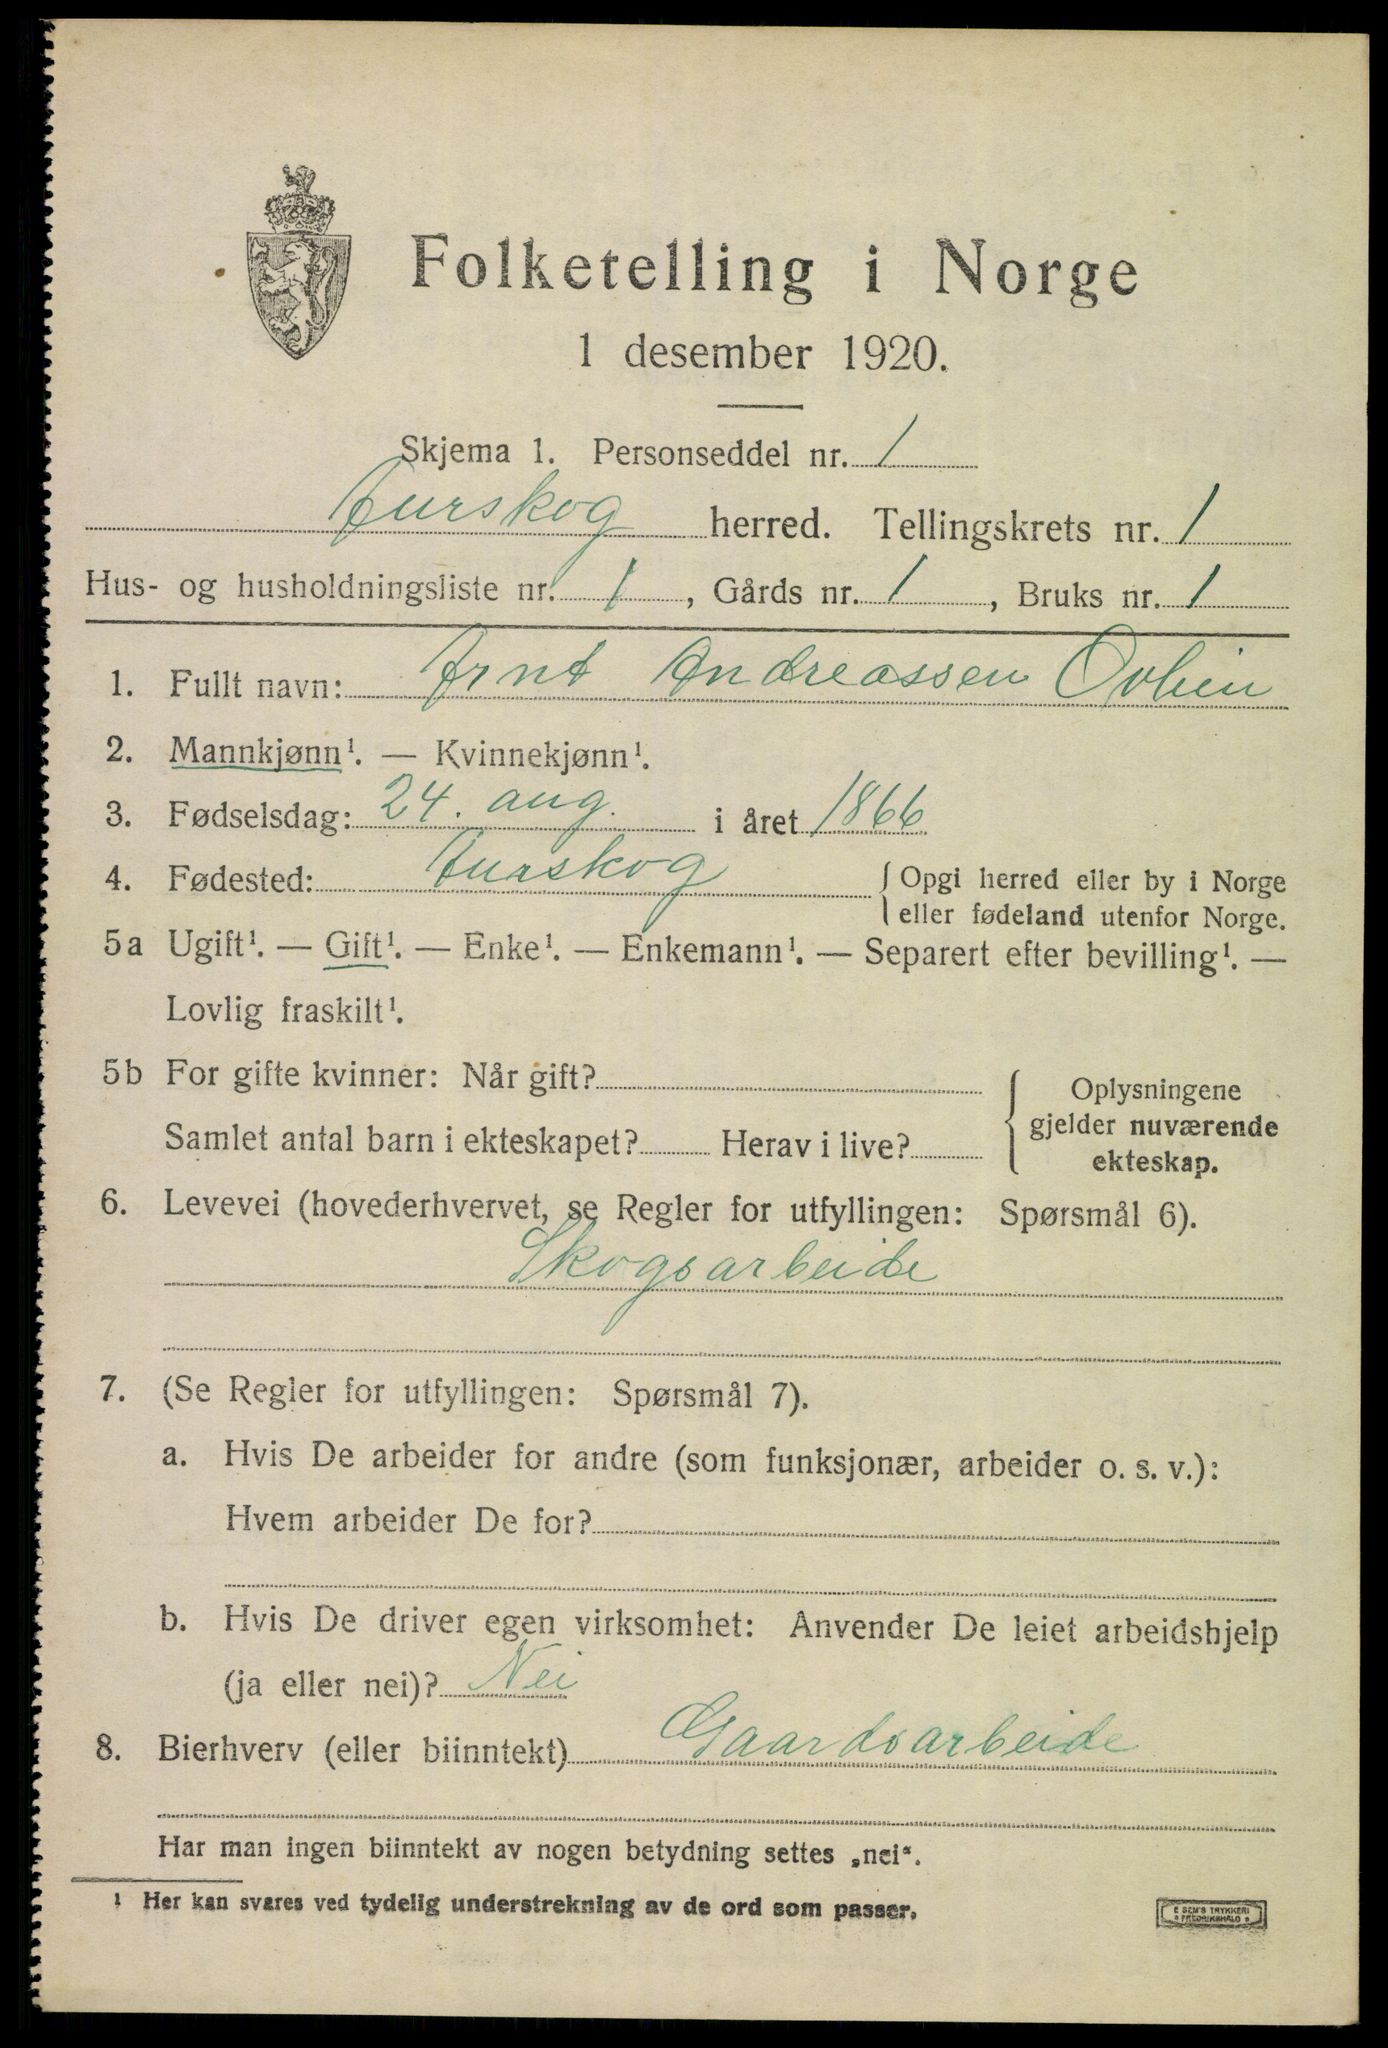 Folketelling i Norge
1 desember 1920.
Skjema 1. Personseddel nr. 1
Aurskog herred. Tellingskrets nr. 1
Hus- og husholdningsliste nr. 1, Gårds nr. 1, Bruks nr. 1
1. Fullt navn: Arnt Andreassen
2. Mannkjønn¹. — Kvinnekjønn¹.
3. Fødselsdag: 24. aug. i året 1866
4. Fødested: Aurskog { Opgi herred eller by i Norge
eller fødeland utenfor Norge.
5a Ugift¹. — Gift¹. — Enke¹. — Enkemann¹. — Separert efter bevilling¹. —
Lovlig fraskilt¹.
5b For gifte kvinner: Når gift?
Samlet antal barn i ekteskapet? Herav i live?
{ Oplysningene
gjelder nuværende
ekteskap.
6. Levevei (hovederhvervet, se Regler for utfyllingen: Spørsmål 6).
Skogsarbeide
7. (Se Regler for utfyllingen: Spørsmål 7).
a. Hvis De arbeider for andre (som funksjonær, arbeider o. s. v.):
Hvem arbeider De for?
b. Hvis De driver egen virksomhet: Anvender De leiet arbeidshjelp
(ja eller nei)? Nei
8. Bierhverv (eller biinntekt) Gaardsarbeide
Har man ingen biinntekt av nogen betydning settes „nei“.
¹ Her kan svares ved tydelig understrekning av de ord som passer.
E SEM'S TRYKKERI
FREDRIKSHALD